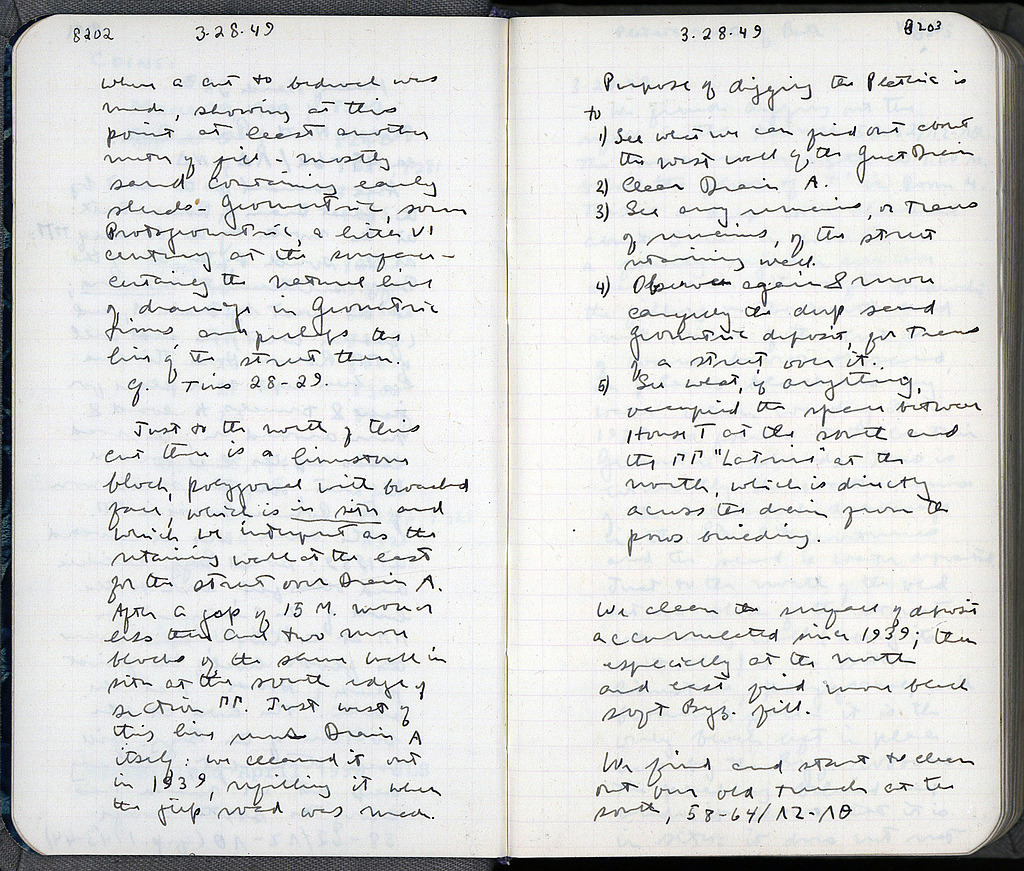 8202 3-28-49
where a cut to bedrock was
made, showing at this
point at least another
meter of fill - mostly
sand containing early
sherds - Geometric, some
Protogeometric, a little VI
century at the surface -
certainly the natural line
of drainage in Geometric
times and perhaps the
line of the street then.
Cf. 28-29.
Just to the north of this
cut there is a limestone
block, polygonal with broached
face, which is in situ and
which we interpret as the
retaining wall at the east
for the street over Drain A.
After a gap of 15 M. more or
less there are two more
blocks of the same wall in
situ at the south edge of
section ΠΠ. Just west of
this line runs Drain A
itself: we cleaned it out
in 1939, refilling it when
the jeep road was made.
3-28-49 8203
Purpose of digging the Plethie is
to
1) See what we can find out about
the west wall of the Great Drain
2) Clear Drain A.
3) See any remains, or traces
of remains, of the street
retaining wall.
4) Observe again & more
carefully the deep sand
Geometric deposit, for traces
of a street over it.
5) See what, if anything,
occupied the space between
House T at the south and
the ΠΠ "Latrine" at the
north, which is directly
across the drain from the
poros building.
We clean the surface of deposit
accumulated since 1939; then
especially at the north
and east find more black
soft Byz. fill.
We find and start to clean
out our old trench at the
south, 58-64/ΛΖ-ΛΘ